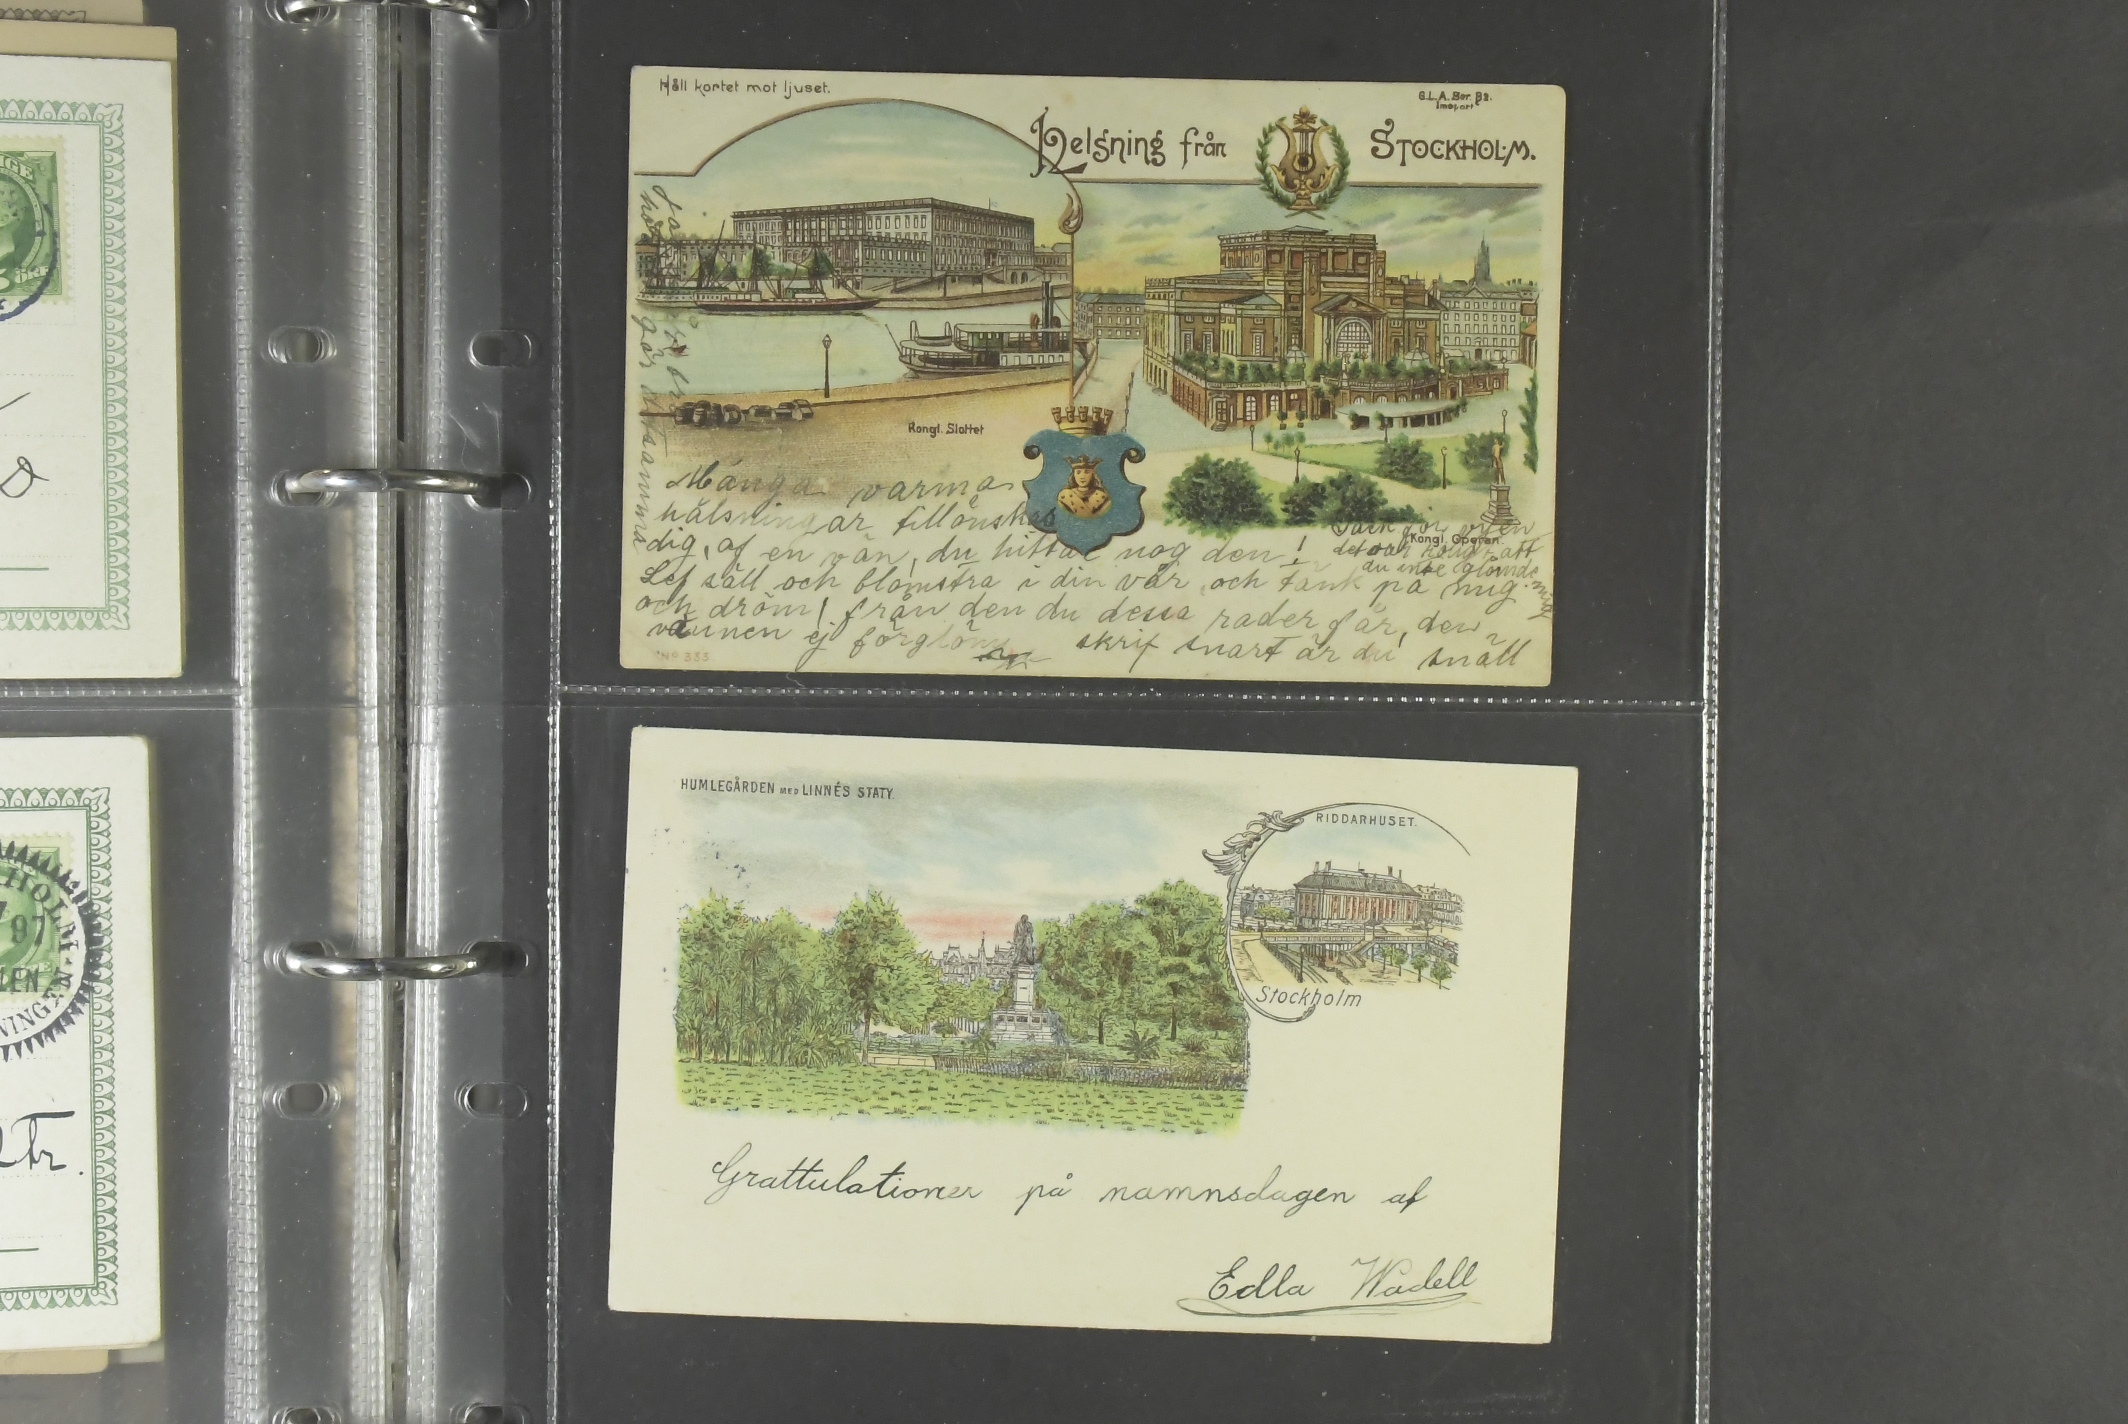 Håll kortet mot ljuset.
G.L.A. Ser. 92.
Import
Helsning från STOCKHOLM.
Kongl. Slottet
Kongl. Operan.
Många varma
hälsningar tillönskas
dig, af en vän, du hittar nog den!
Lef säll och blomstra i din vår och tänk på mig
och dröm! från den du dessa rader får, den
vännen ej förglöm
skrif snart är du snäll
Tack för
det var roligt att
du inte glömde
mig
gör detsamma
No 333
HUMLEGÅRDEN MED LINNÉS STATY.
RIDDARHUSET.
Stockholm
Grattulationer på namnsdagen af
Edla Wadell
IGE
ÖRE
HOLM
97
LEN
NINGEN
Tr.